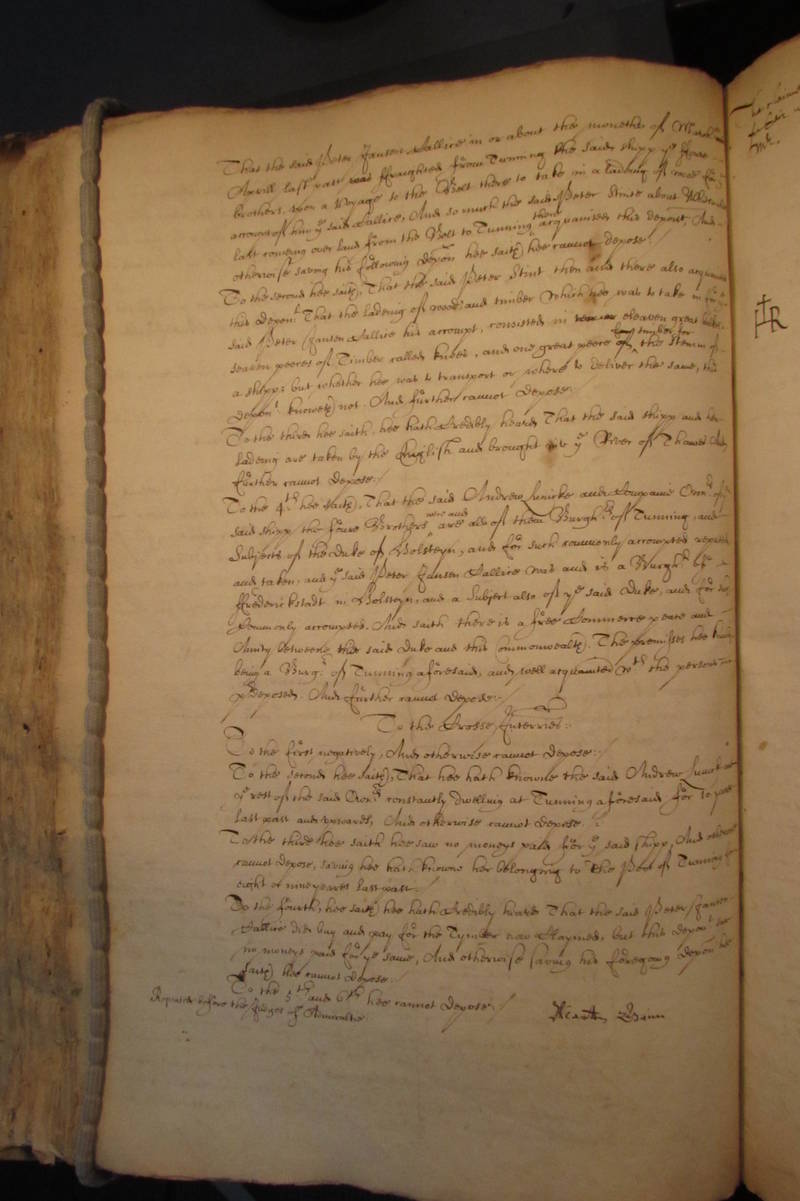 That the said Peter Jansen Sallire in or about the moneths of March or
Aprill last past was ffraughted from Tunning the said shipp ye ffoure
brothers, upon a Voyage to the Belt there to take in a ladeing of wood for
accompt of him ye said Sallire, And so much the said Peter Stint about
last comeing over land from the Belt to Tunning then acquainted this deponent, And
otherwise saving his following deposn hee saith hee cannot depose./
To the second hee saith, That the said Peter Stint then and there also acquainted
this deponent That the ladeing of wood and timber which hee was to take in for ye
said Peter Jansen Sallire his accompt, consisted in eleaven great
seaven peeces of Timber called knees, and one great peece of timber for the Stemm of
a shipp; but whether hee was to transport or where to deliver the same, this
deponent knoweth not. And further cannot depose./
To the third hee saith, hee hath Credibly heard That the said shipp and her
ladeing are taken by the English and brought into ye River of Thames And
further cannot depose./
To the 4th hee saith, That the said Andrew and Company Owners of ye
said shipp the foure Brothers were and are all of them Burghers of Tunning, and
Subjects of the Duke of Holsteyn, and for such commonly accompted reputed
and taken, and ye said Peter Jansen Sallire was and is a Burgher of
ffrederickstadt in Holsteyn, and a Subject also of ye said Duke, and for such
Commonly accompted. And saith there is a free Commerce peace and
Amity betweene the said Duke and this Commonwealth. The premisses hee knoweth
being a Burgr of Tunning aforesaid, and well acquainted wth the persons
predeposed. And further cannot depose./
To the Crosse Interries:
To the first negatively, And otherwise cannot depose./
To the second hee saith, That hee hath knowne the said Andrew and
ye rest of the said Ownrs constantly dwelling at Tunning aforesaid for 10 yeares
last past and upwards, And otherwise cannot depose./
To the third hee saith hee saw no moneys paid for ye said shipp, And otherwise
cannot depose, saving hee hath knowne her belonging to the Port of Tunning
eight or nine yeares last past./
To the fourth, hee saith hee hath Credibly heard That the said Peter Jansen
Sallire did buy and pay for the Tymber now Claymed, but this deponent saw
no moneys paid for ye same, And otherwise saving his foregoing deposn hee
saith hee cannot depose./
To the 5th and 6th hee cannot depose./
Repeated before the Judges of ye Admiraltie.